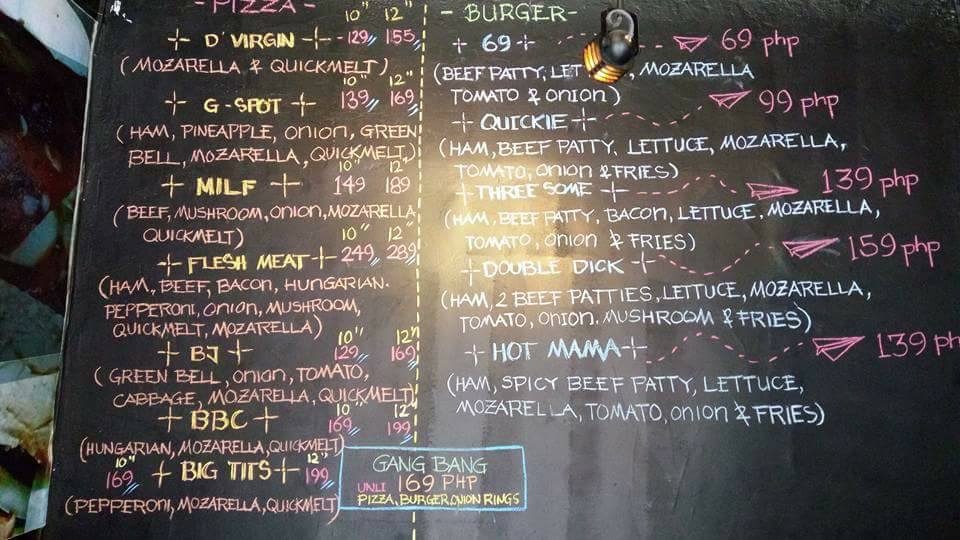 - PIZZA -
10" 12"
D' VIRGIN 129 155
(MOZARELLA & QUICKMELT)
10" 12"
G-SPOT 139 169
(HAM, PINEAPPLE, ONION, GREEN
BELL, MOZARELLA, QUICKMELT)
10" 12"
MILF 149 189
(BEEF, MUSHROOM, ONION, MOZARELLA
QUICKMELT)
10" 12"
FLESH MEAT 249 289
(HAM, BEEF, BACON, HUNGARIAN.
PEPPERONI, ONION, MUSHROOM,
QUICKMELT, MOZARELLA)
10" 12"
BJ 129 169
(GREEN BELL, ONION, TOMATO,
CABBAGE, MOZARELLA, QUICKMELT)
10" 12"
BBC 169 199
(HUNGARIAN, MOZARELLA, QUICKMELT)
10" 12"
169 BIG TITS 199
(PEPPERONI, MOZARELLA, QUICKMELT)
- BURGER -
69 69 php
(BEEF PATTY, LET , MOZARELLA
TOMATO & ONION)
QUICKIE 99 php
(HAM, BEEF PATTY, LETTUCE, MOZARELLA,
TOMATO, ONION & FRIES)
THREE SOME 139 php
(HAM, BEEF PATTY, BACON, LETTUCE, MOZARELLA,
TOMATO, ONION & FRIES)
DOUBLE DICK 159 php
(HAM, 2 BEEF PATTIES, LETTUCE, MOZARELLA,
TOMATO, ONION. MUSHROOM & FRIES)
HOT MAMA 139 ph
(HAM, SPICY BEEF PATTY, LETTUCE,
MOZARELLA, TOMATO, ONION & FRIES)
GANG BANG
UNLI 169 PHP
PIZZA, BURGER, ONION RINGS